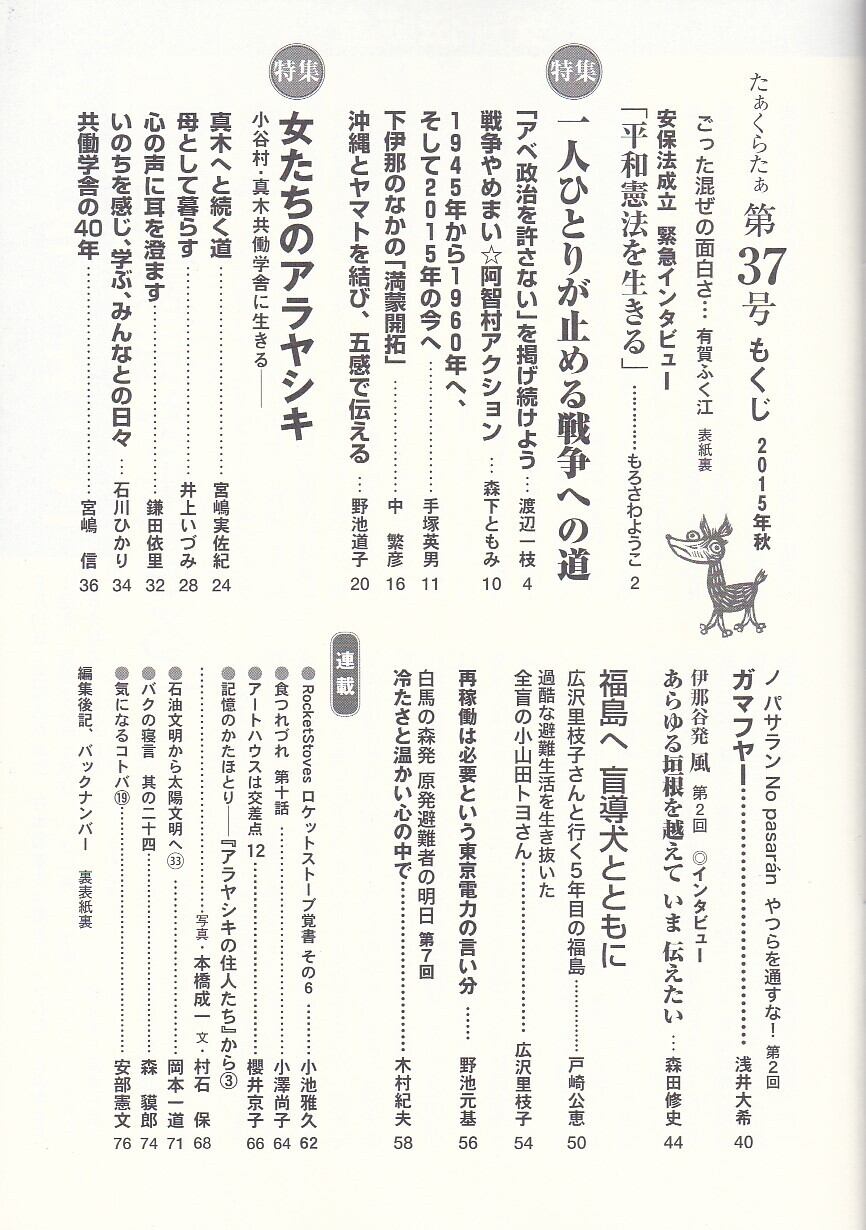 たぁくらたぁ 第37号 もくじ 2015年秋
ごった混ぜの面白さ… 有賀ふく江 表紙裏
安保法成立 緊急インタビュー
「平和憲法を生きる」…………もろさわようこ 2
特集
一人ひとりが止める戦争への道
「アベ政治を許さない」を掲げ続けよう…渡辺一枝 4
戦争やめまい☆阿智村アクション…森下ともみ 10
1945年から1960年へ、
そして2015年の今へ……………手塚英男 11
下伊那のなかの「満蒙開拓」……………中 繁彦 16
沖縄とヤマトを結び、五感で伝える…野池道子 20
特集
女たちのアラヤシキ
小谷村・真木共働学舎に生きる――
真木へと続く道……………………宮嶋実佐紀 24
母として暮らす……………………井上いづみ 28
心の声に耳を澄ます……………………鎌田依里 32
いのちを感じ、学ぶ、みんなとの日々…石川ひかり 34
共働学舎の40年……………………宮嶋 信 36
ノ パサラン No pasarán やつらを通すな! 第2回
ガマフヤー……………………浅井大希 40
伊那谷発 風 第2回 ◎インタビュー
あらゆる垣根を越えて いま 伝えたい…森田修史 44
福島へ 盲導犬とともに
広沢里枝子さんと行く5年目の福島…………戸崎公恵 50
過酷な避難生活を生き抜いた
全盲の小山田トヨさん……………………広沢里枝子 54
再稼働は必要という東京電力の言い分……野池元基 56
白馬の森発 原発避難者の明日 第7回
冷たさと温かい心の中で……………………木村紀夫 58
連載
●RocketStoves ロケットストーブ覚書 その6………小池雅久 62
●食つれづれ 第十話……………………小澤尚子 64
●アートハウスは交差点 12……………………櫻井京子 66
●記憶のかたほとり――『アラヤシキの住人たち』から③
……………………写真・本橋成一 文・村石 保 68
●石油文明から太陽文明へ㉝……………………岡本一道 71
●バクの寝言 其の二十四……………………森 貘郎 74
●気になるコトバ⑲……………………安部憲文 76
編集後記、バックナンバー 裏表紙裏